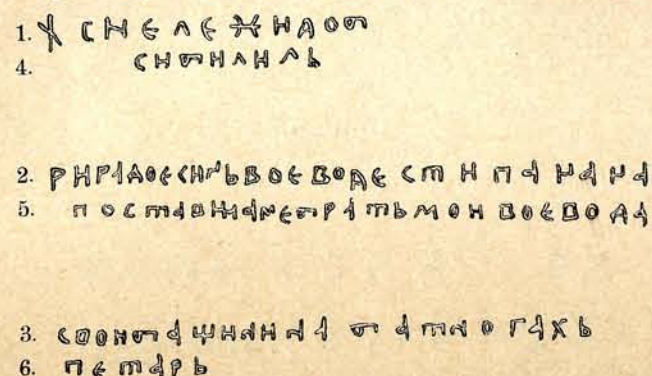 1. Х СНЄ ЛЄЖНДОБ
4. СНБНЛНЛЬ
2. РНРАДОЄСННЬВОЄВОДЄ СТНПАНАНА
5. ПОСТАВННАМЄБРАТЬМОН ВОЄВОДА
3. СВОНОБАШНННАА БАТНОГАХЬ
6. ПЄТАРЬ